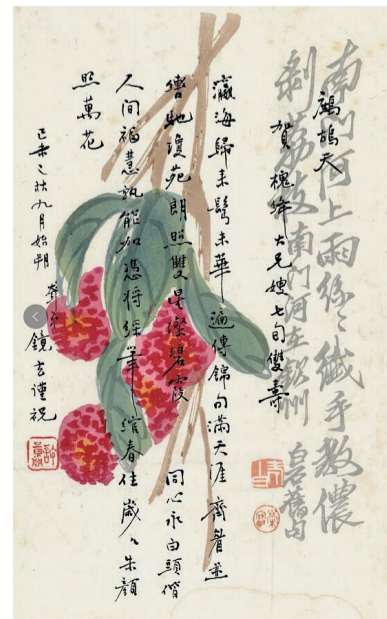 南門河上雨絲〻纖手教儂
剝荔支南門河在欽州 白石舊句
鷓鴣天
賀槐絳大兄嫂七旬雙壽
瀛海歸來鬢未華 遍傳錦句滿天涯 齊眉並
轡馳瓊苑 朗照雙星燦碧霞 同心永 白頭偕
人間福慧孰能加 憑將綵筆綰春住 歲〻朱顏
照萬花
己未之秋九月始朔 鏡玄謹祝